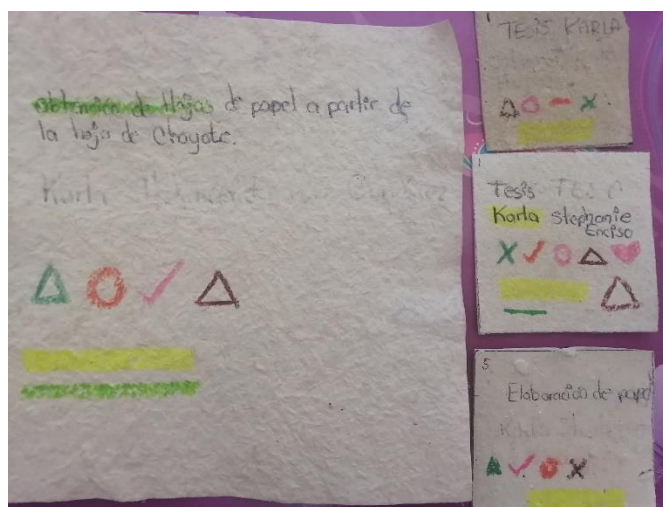 obtención de Hojas de papel a partir de
la hoja de Chayote.
Karla
TESIS KARLA
1
Tesis TESIS
Karla Stephanie
Enciso
5
Elaboración de papel
Karla